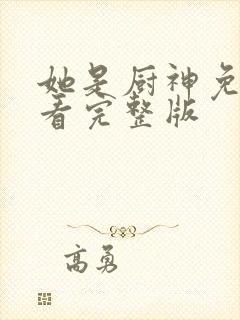 她是厨神免
看完整版
高勇